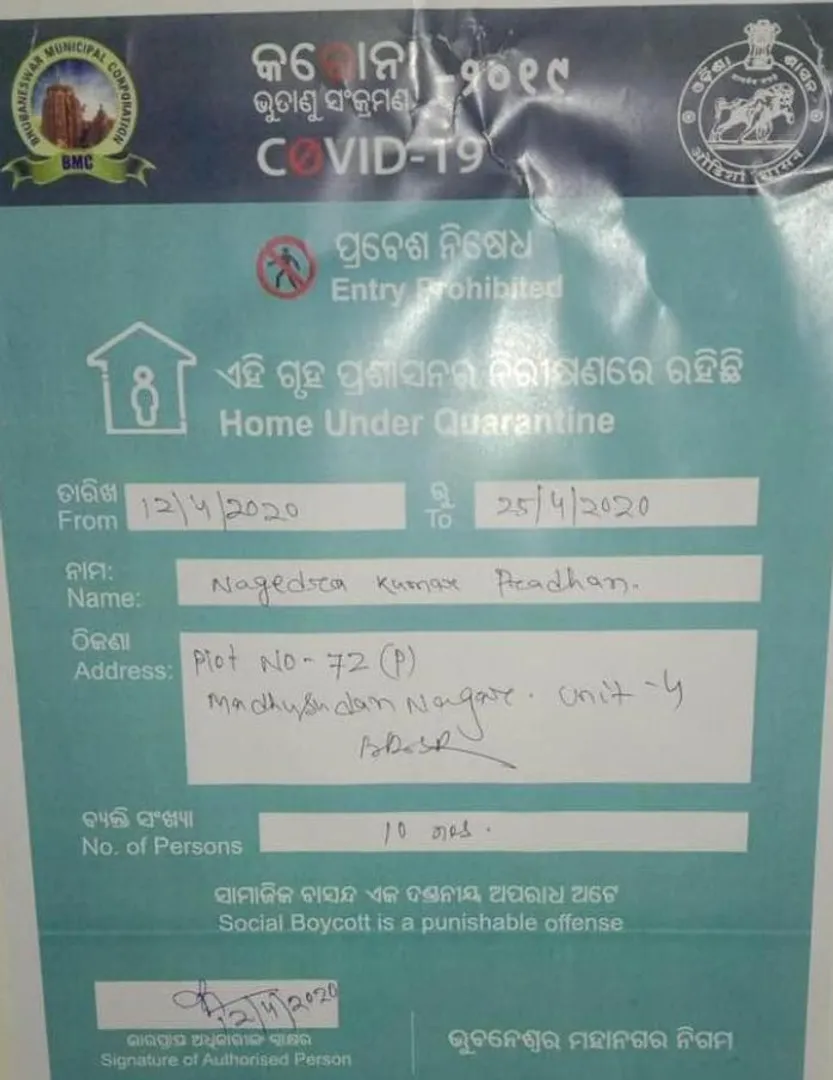 BHUBANESWAR MUNICIPAL CORPORATION
BMC
କରୋନା -୨୦୧୯
ଭୂତାଣୁ ସଂକ୍ରମଣ
COVID-19
ଓଡ଼ିଶା ଶାସନ
ओडिशा शासन
ପ୍ରବେଶ ନିଷେଧ
Entry Prohibited
ଏହି ଗୃହ ପ୍ରଶାସନର ନିରୀକ୍ଷଣରେ ରହିଛି
Home Under Quarantine
ତାରିଖ ରୁ
From 12/4/2020 To 25/4/2020
ନାମ:
Name: Nagedra Kumar Pradhan.
ଠିକଣା
Address: Plot No- 72 (P)
Madhusudan Nagar. Unit-4
BBSR
ବ୍ୟକ୍ତି ସଂଖ୍ୟା
No. of Persons 10 nos.
ସାମାଜିକ ବାସନ୍ଦ ଏକ ଦଣ୍ଡନୀୟ ଅପରାଧ ଅଟେ
Social Boycott is a punishable offense
12/4/2020
ଭାରପ୍ରାପ୍ତ ଅଧିକାରୀଙ୍କ ସ୍ୱାକ୍ଷର
Signature of Authorised Person
ଭୁବନେଶ୍ୱର ମହାନଗର ନିଗମ